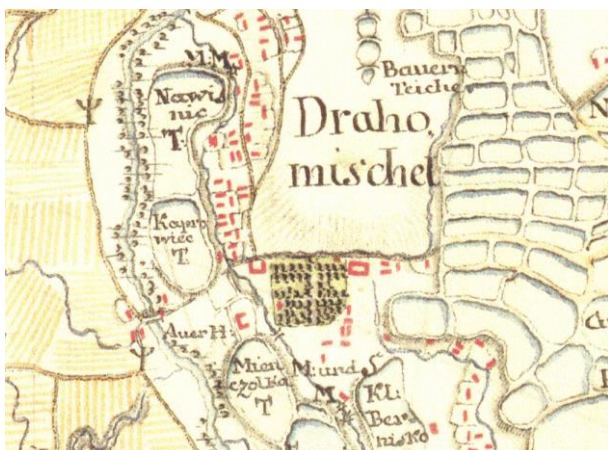 M.M.
Nawis
nic
T.
Bauern
Teiche
Draho,
mischel
Kapro
wiec
T
Auer H:
Mien
czolka
T
M: und S
M.
Kl:
Ber
nisko